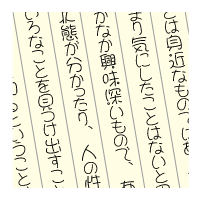 とは身近なもので
まり気にしたことはないとの
がなか興味深いもので、
化態が分かったり、人の性
いろなことを見つけ出すこ
ということ